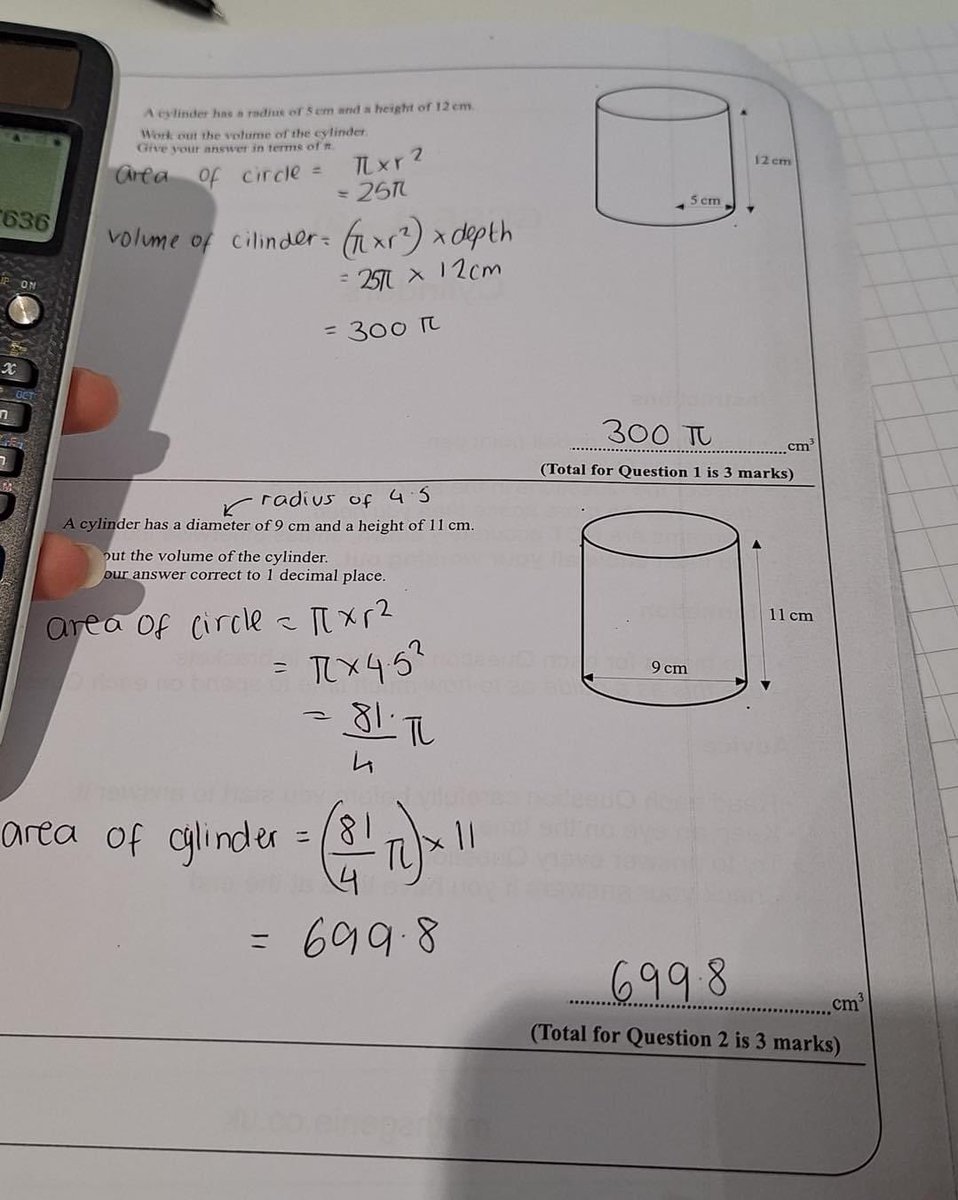 A cylinder has a radius of 5 cm and a height of 12 cm.
Work out the volume of the cylinder.
Give your answer in terms of π.
12 cm
5 cm
area of circle = π x r²
= 25π
volume of cilinder = (π x r²) x depth
= 25π x 12cm
= 300 π
636
ON
x
300 π cm³
(Total for Question 1 is 3 marks)
radius of 4.5
A cylinder has a diameter of 9 cm and a height of 11 cm.
out the volume of the cylinder.
our answer correct to 1 decimal place.
11 cm
9 cm
area of circle = π x r²
= π x 4.5²
= 81/4 π
area of cylinder = (81/4 π) x 11
= 699.8
699.8 cm³
(Total for Question 2 is 3 marks)